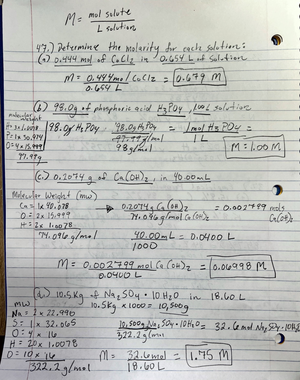 M = mol solute / L solution
47.) Determine the molarity for each solution:
(a) 0.444 mol of CoCl₂ in 0.654 L of solution
M = 0.444 mol CoCl₂ / 0.654 L = 0.679 M
(b) 98.0g of phosphoric acid H₃PO₄, 1.00 L solution
molecular weight
H= 3×1.0078
P= 1×30.974
O= 4×15.999
97.99g
98.0g H₃PO₄ 98.0g H₃PO₄ / 98g/mol = 1mol H₃PO₄ / 1L =
M = 1.00 M
(c.) 0.2074 g of Ca(OH)₂, in 40.00mL
Molecular Weight (mw)
Ca = 1× 40.078
O = 2 × 15.999
H = 2× 1.0078
74.096 g/mol
0.2074g Ca(OH)₂ / 74.096 g/mol Ca(OH)₂ = 0.002799 mols Ca(OH)₂
40.00mL / 1000 = 0.0400 L
M = 0.002799 mol Ca(OH)₂ / 0.0400 L = 0.06998 M
(d.) 10.5Kg of Na₂SO₄ · 10H₂O in 18.60L
10.5Kg × 1000 = 10,500g
mw
Na = 2 × 22.990
S = 1× 32.065
O = 4 × 16
H = 20 × 1.0078
O = 10 × 16
322.2 g/mol
10,500g Na₂SO₄ · 10H₂O / 322.2 g/mol = 32.6 mol Na₂SO₄ · 10H₂O
M = 32.6mol / 18.60L = 1.75 M